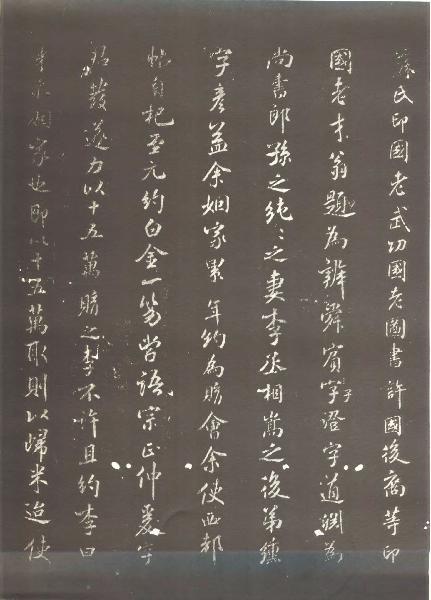 蘇氏印國老武功國老圖書許國後裔等印
國老才翁題為辨舜賓字子澄字道淵為
尚書郎孫之純〻之妻李丞相嵩之後弟纁
字彥益余姻家累年約為購會余使西都
帖自杷至元約白金一笏嘗語宗正仲爰字
君發遂力以十五萬購之李不許且約李曰
李氏姻家也即以十五萬取則以歸米迨使